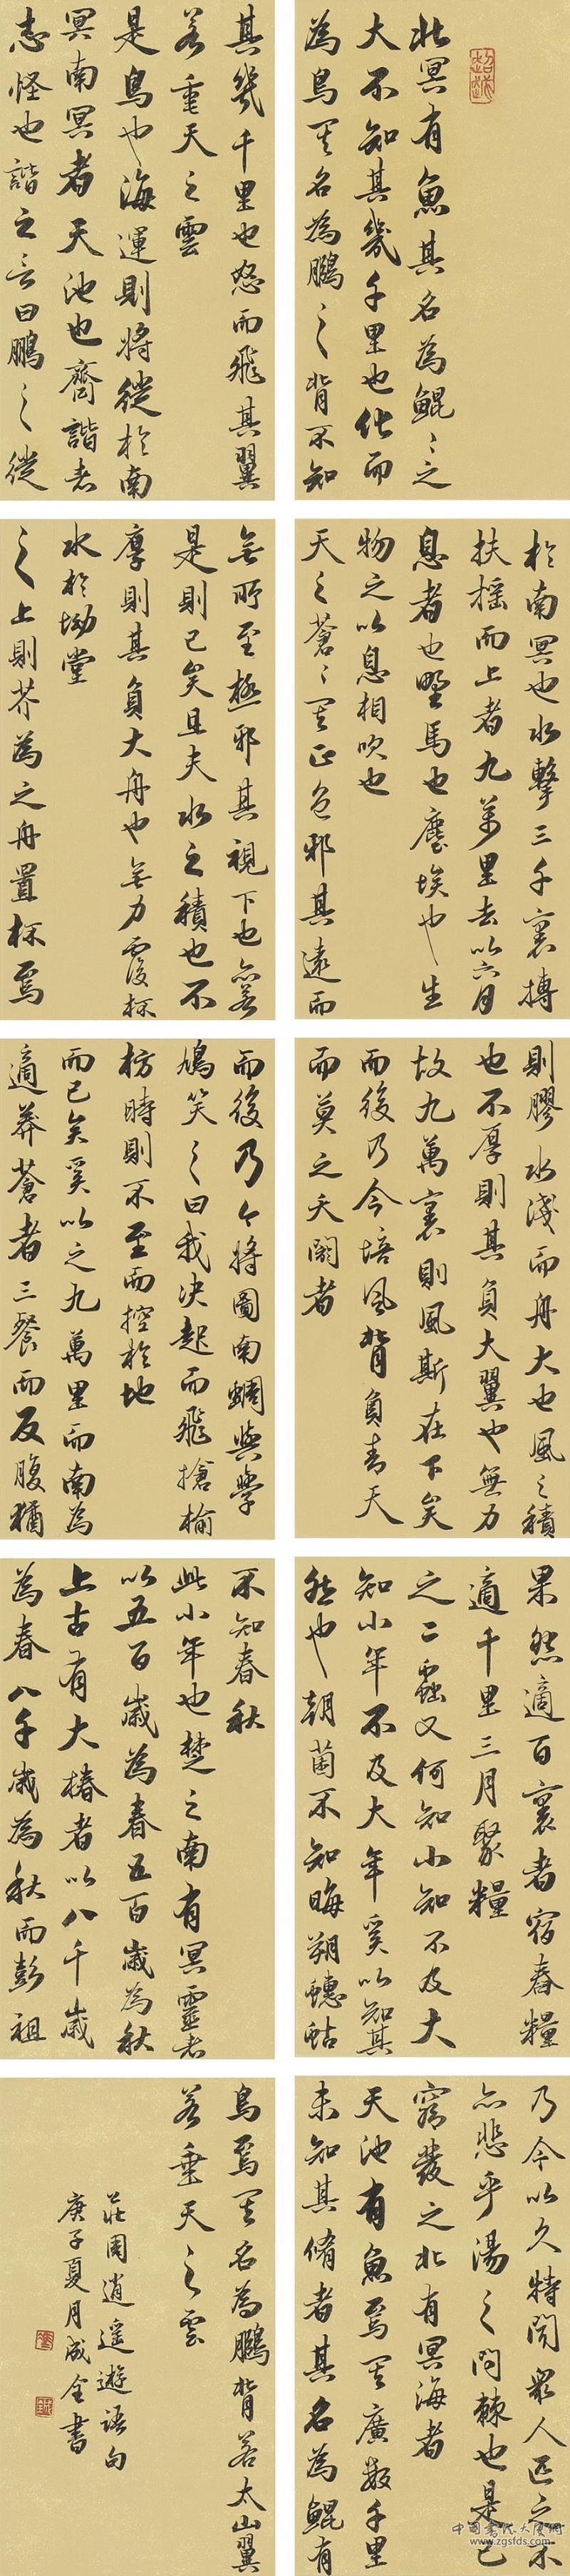 北冥有魚其名為鯤〻之
大不知其幾千里也化而
為鳥其名為鵬之背不知
其幾千里也怒而飛其翼
若垂天之雲
是鳥也海運則將徙於南
冥南冥者天池也齊諧者
志怪也諧之言曰鵬之徙
於南冥也水擊三千裏摶
扶搖而上者九萬里去以六月
息者也野馬也塵埃也生
物之以息相吹也
天之蒼〻其正色邪其遠而
無所至極邪其視下也亦若
是則已矣且夫水之積也不
厚則其負大舟也無力覆杯
水於坳堂
之上則芥為之舟置杯焉
則膠水淺而舟大也風之積
也不厚則其負大翼也無力
故九萬裏則風斯在下矣
而後乃今培風背負青天
而莫之夭閼者
而後乃今將圖南蜩與學
鳩笑之曰我決起而飛搶榆
枋時則不至而控於地
而已矣奚以之九萬里而南為
適莽蒼者三餐而反腹猶
果然適百裏者宿舂糧
適千里三月聚糧
之二蟲又何知小知不及大
知小年不及大年奚以知其
然也朝菌不知晦朔蟪蛄
不知春秋
此小年也楚之南有冥靈者
以五百歲為春五百歲為秋
上古有大椿者以八千歲
為春八千歲為秋而彭祖
乃今以久特聞眾人匹之不
亦悲乎湯之問棘也是已
窮髮之北有冥海者
天池有魚焉其廣數千里
未知其脩者其名為鯤有
鳥焉其名為鵬背若太山翼
若垂天之雲
莊周逍遙遊語句
庚子夏月成全書
中国书法大使网
www.zgsfds.com